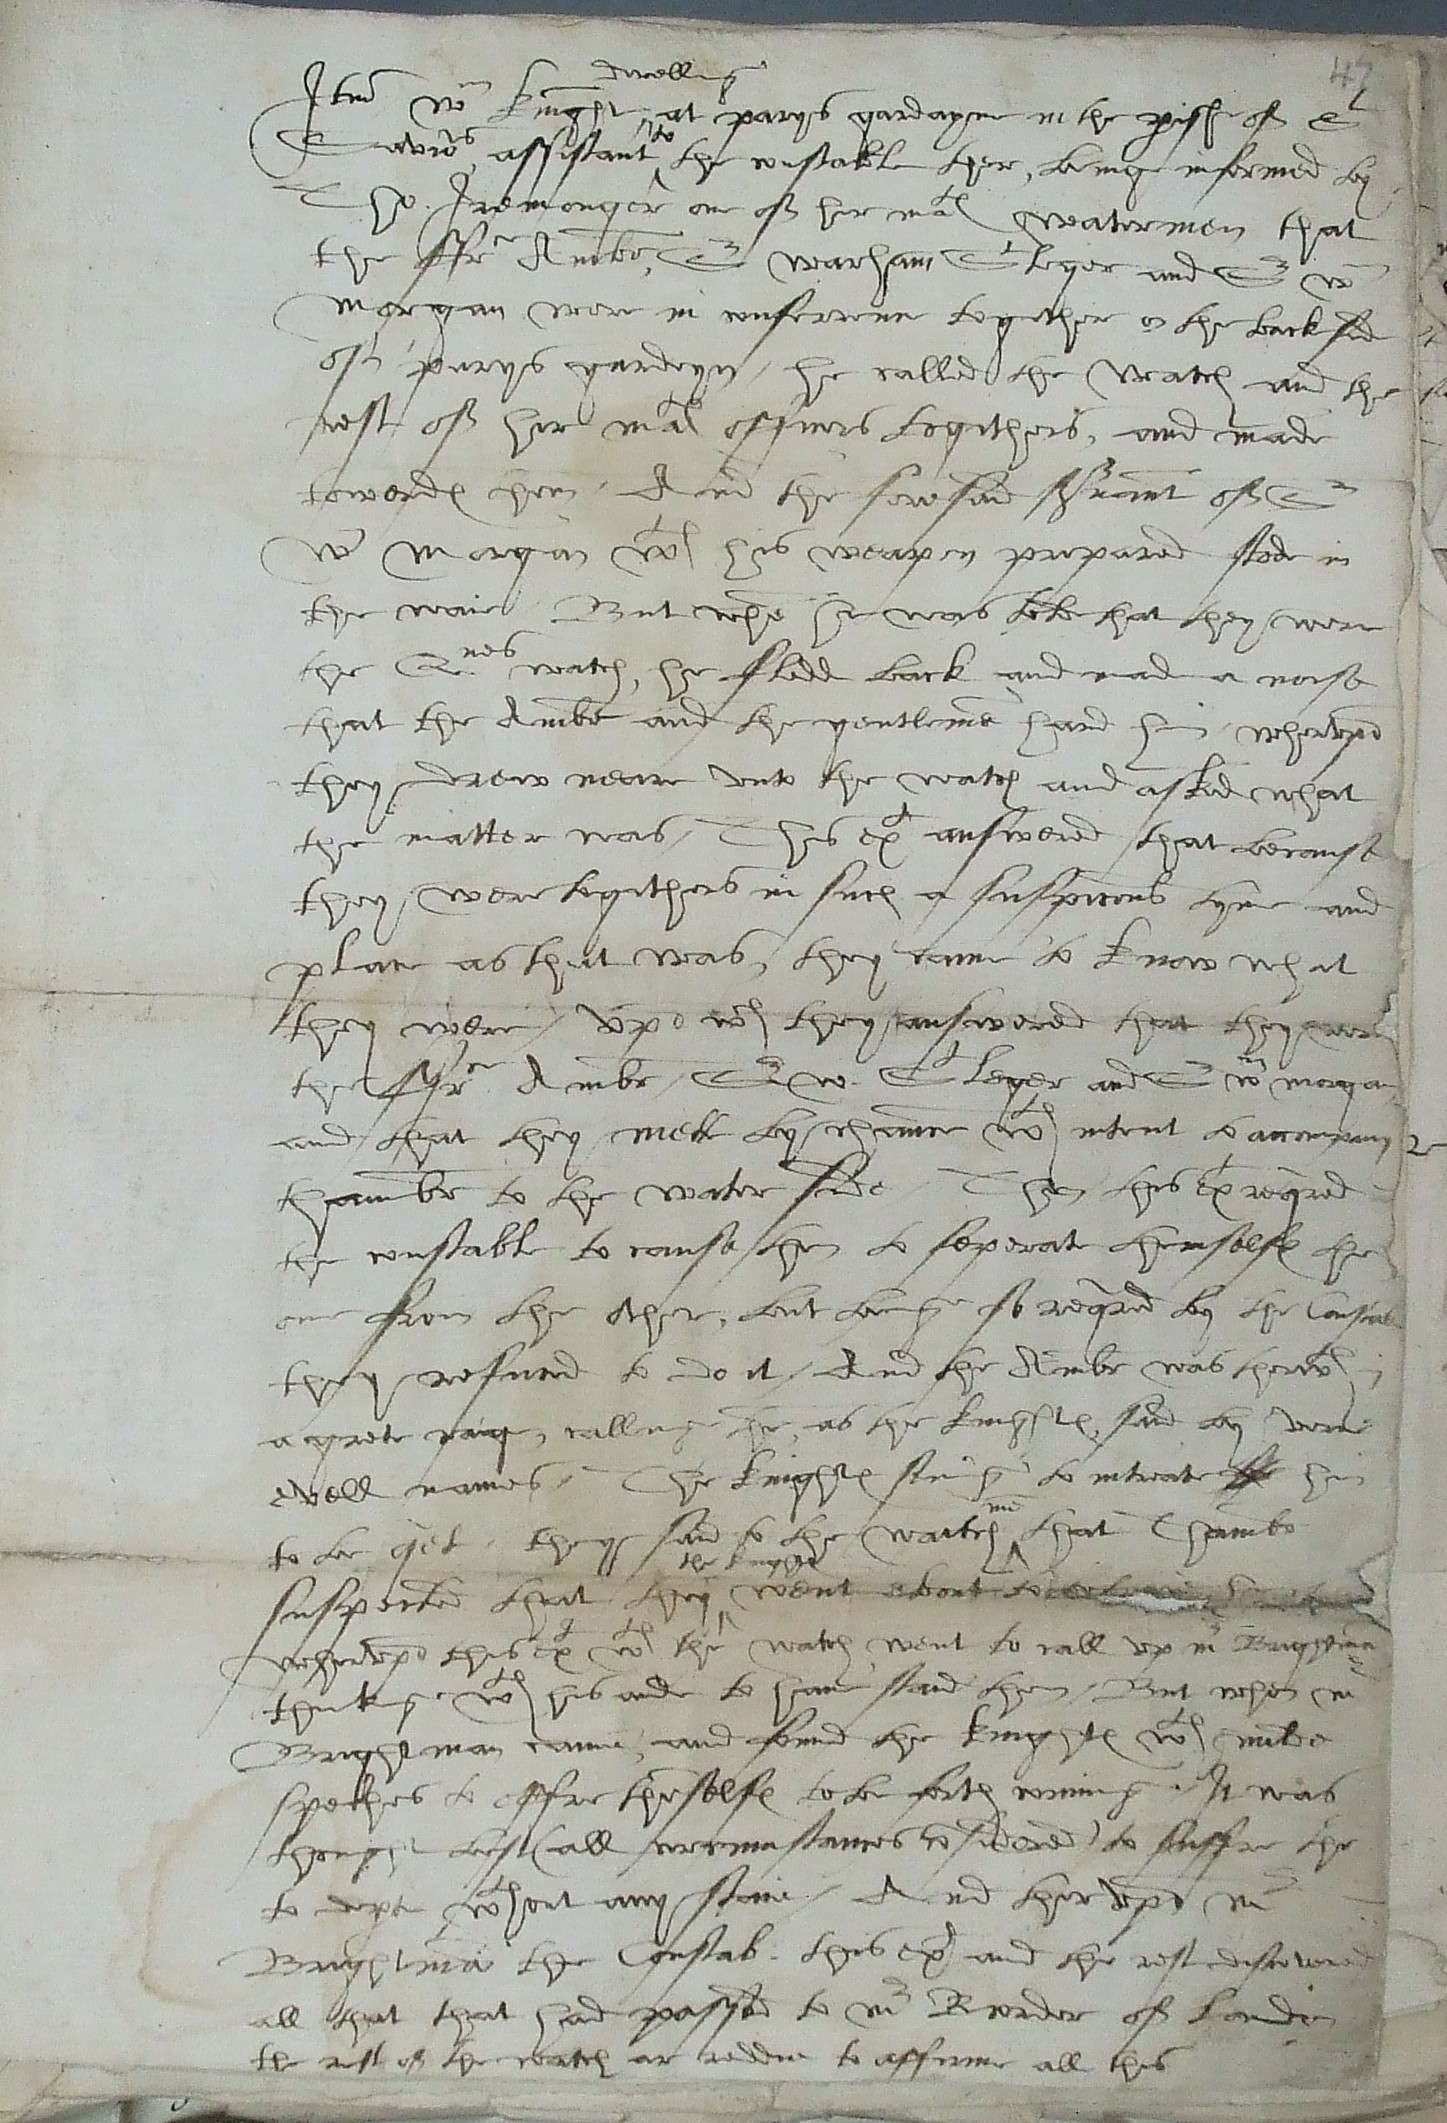 47
dwelling
Itm̄ Wm̄ Knight at parys gardayne in the pish of St
Saviors, assistant to the constable ther, being informed by
Tho. Iremonger one of her matꝭ watermen that
the ffre Ambr, Sr Warham St leger and Sr Wm
Morgan were in conference together on the back side
of parys gardeyn / he called the watch and the
rest of her matꝭ officers togithers, and made
towardꝭ them. And the foresaid s'vant of Sr
Wm Morgan wth his weapen prepared stode in
the waie / But whē he was tolde that they were
the Qnes watch, he fledd back and mad a noise
that the Ambr and the gentlemē hard him wherupō
they drew neare unto the watch and asked what
the matter was / This ext answered that because
they were togithers in such a suspicious tyme and
place as that was, they came to know what
they were / Upō wch they answered that they were
the ffre Ambr / Sr W. St Leger and Sr Wm Morgan
and that they mett by chance wth intent to accompany
thambr to the water side / Then this ext reqred
the constable to cause them to seperate themselfꝭ the
one from the other, but beinge so reqred by the Constable
they refused to do it / And the Ambr was therwth in
a grete rage, calling thē, as the knightꝭ said by verie
evell names / The knightꝭ seking to intreate him
to be qiet. they said to the watch me that Thambr
the knightꝭ
suspected that they went about to
wherupō this ext wth the watch went to call up mr Brightman
thinking wth his aide to have staid them / But when mr
Brightman came, and found the knightꝭ wth milde
speches to offre themselfꝭ to be forth coming. It was
thought best (all circumstances cōsidered) to suffre thē
to depte wthout any staie / And therupō mr
Brightmā the Constab. this ext and the rest discovered
all that that had passed to mr Recorder of London
the rest of the watch ar reddie to affirme all this